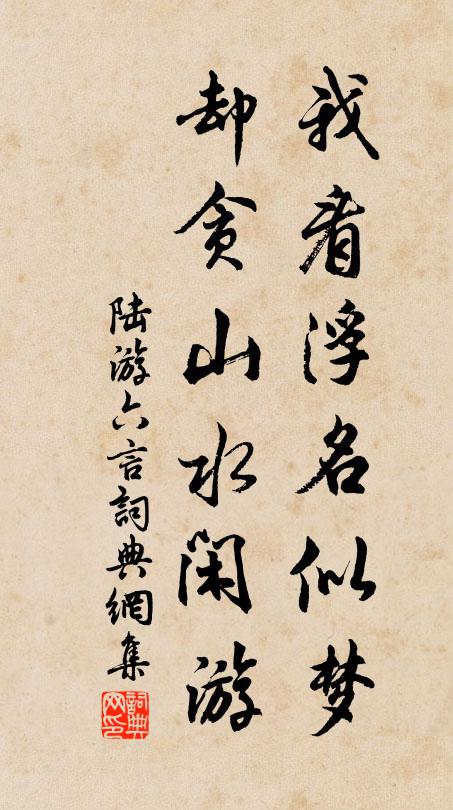 我看浮名似梦
却贪山水闲游
陆游六言詞典網集
詞典网印